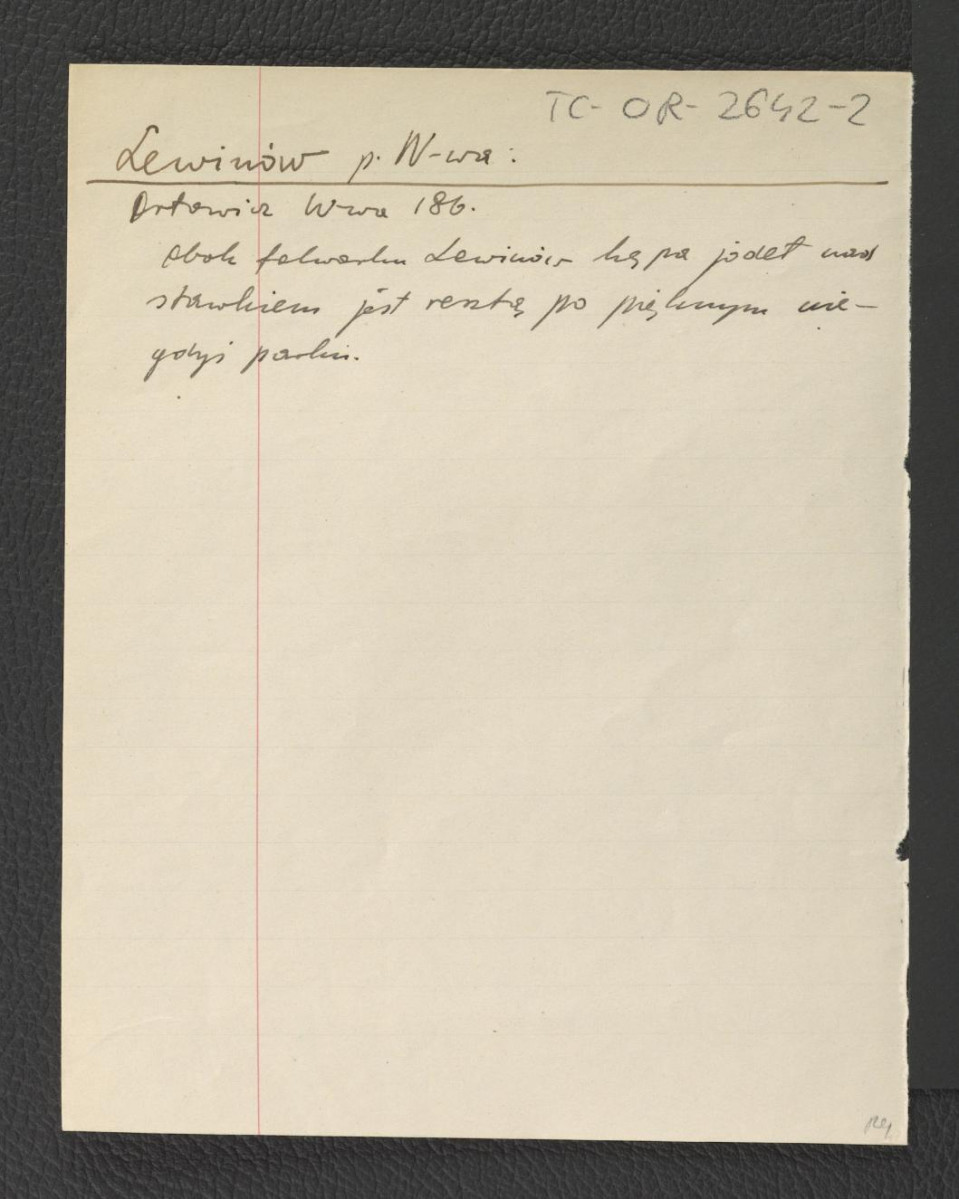 TC-OR-2642-2
Lewinów p. W-wa:
Ortowicz W-wa 186.
obok folwarku Lewinów kępa jodeł nad
stawkiem jest resztą po pięknym nie-
gdyś parku.